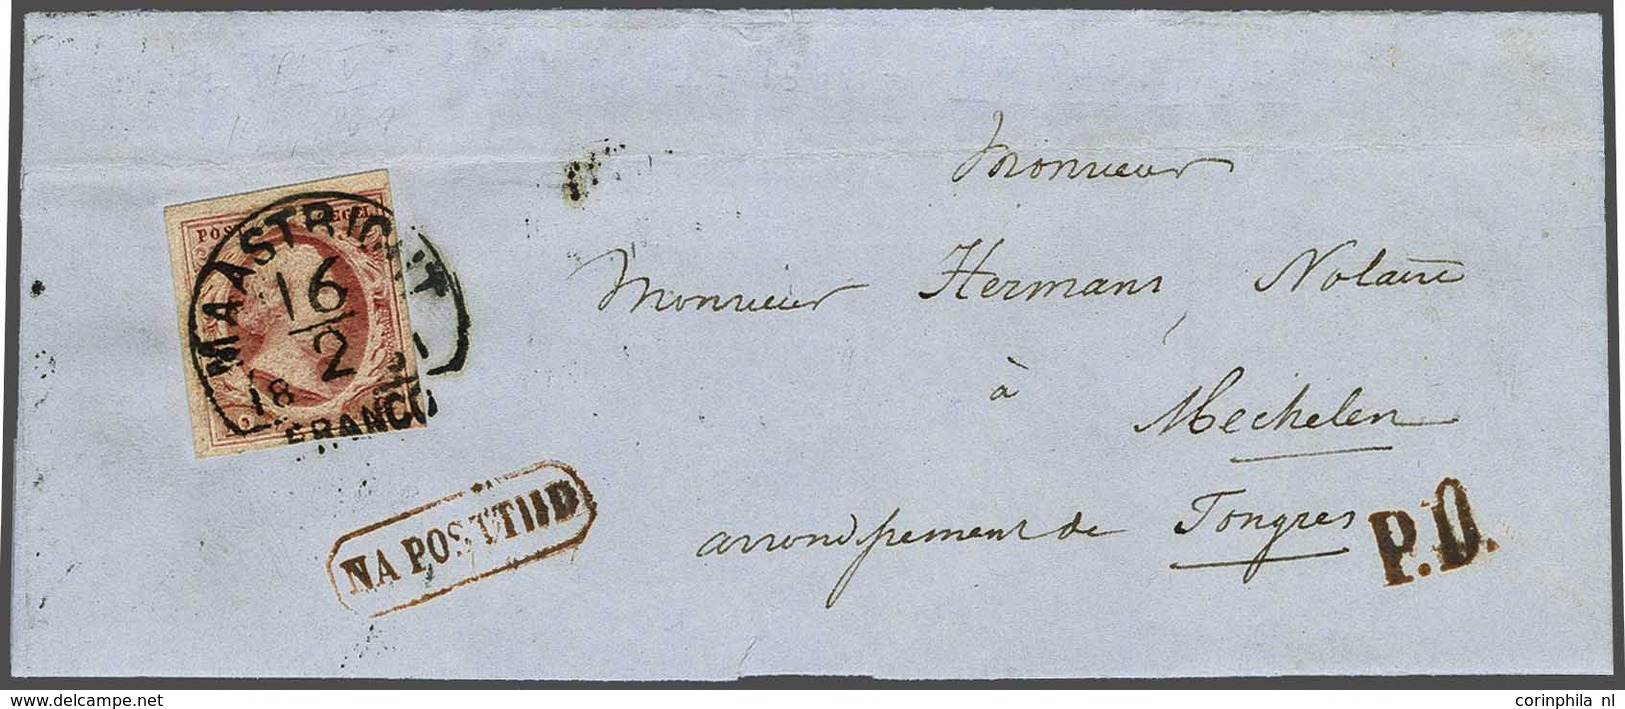 POST EGEL
MAASTRICHT
16
2
18
FRANCO
NA POSTTIJD
Monsieur
Monsieur Hermans Notaire
à
Mechelen
arrondissement de Tongres
P.D.
www.delcampe.net
corinphila nl